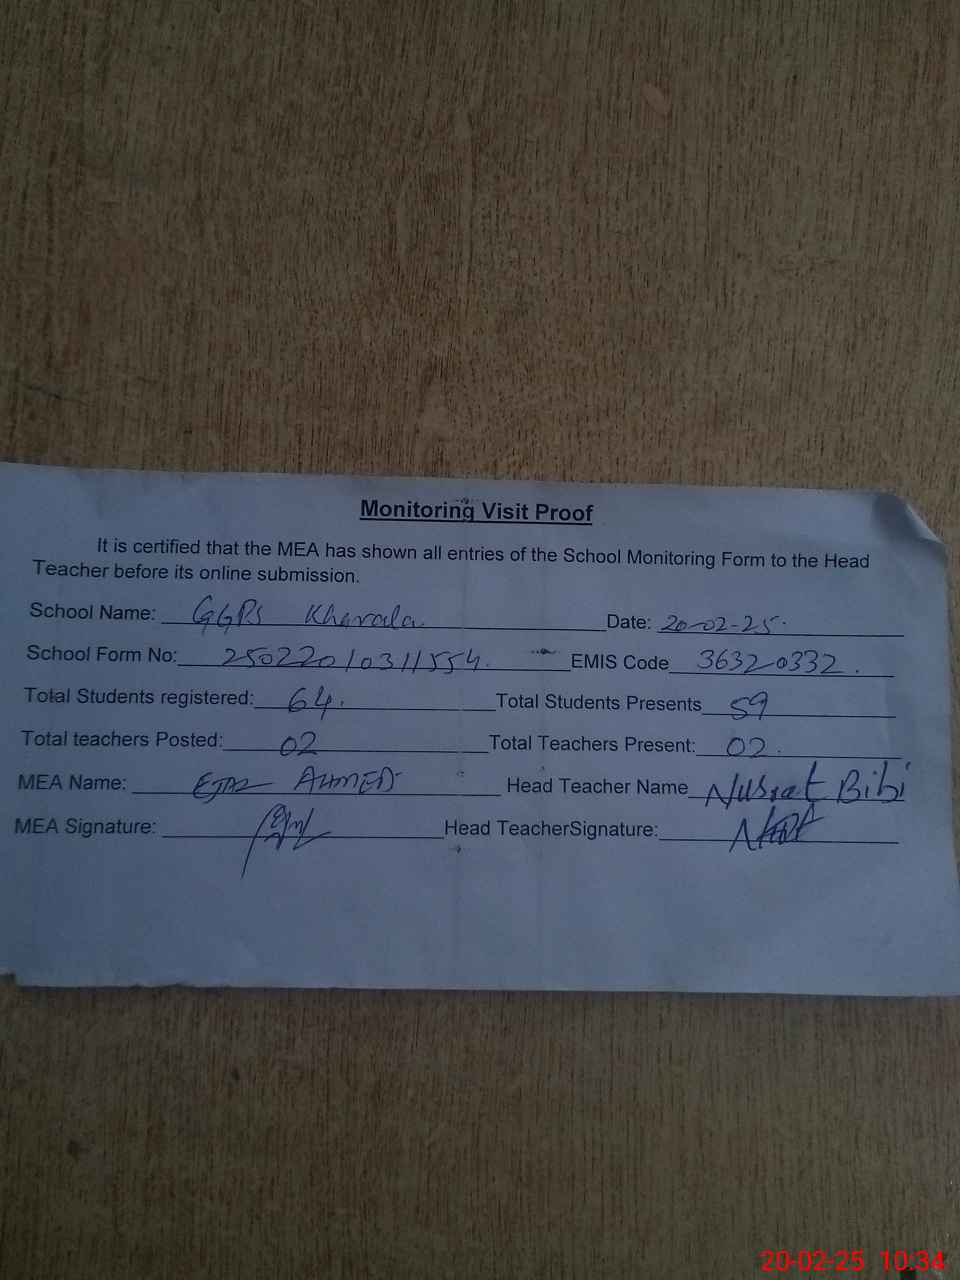 Monitoring Visit Proof
It is certified that the MEA has shown all entries of the School Monitoring Form to the Head
Teacher before its online submission.
School Name: GGPS Kharala. Date: 20-02-25.
School Form No: 25022010311554. EMIS Code 36320332.
Total Students registered: 64. Total Students Presents 59
Total teachers Posted: 02 Total Teachers Present: 02.
MEA Name: EJAZ AHMED Head Teacher Name Nusrat Bibi
MEA Signature: Head TeacherSignature:
20-02-25 10:34